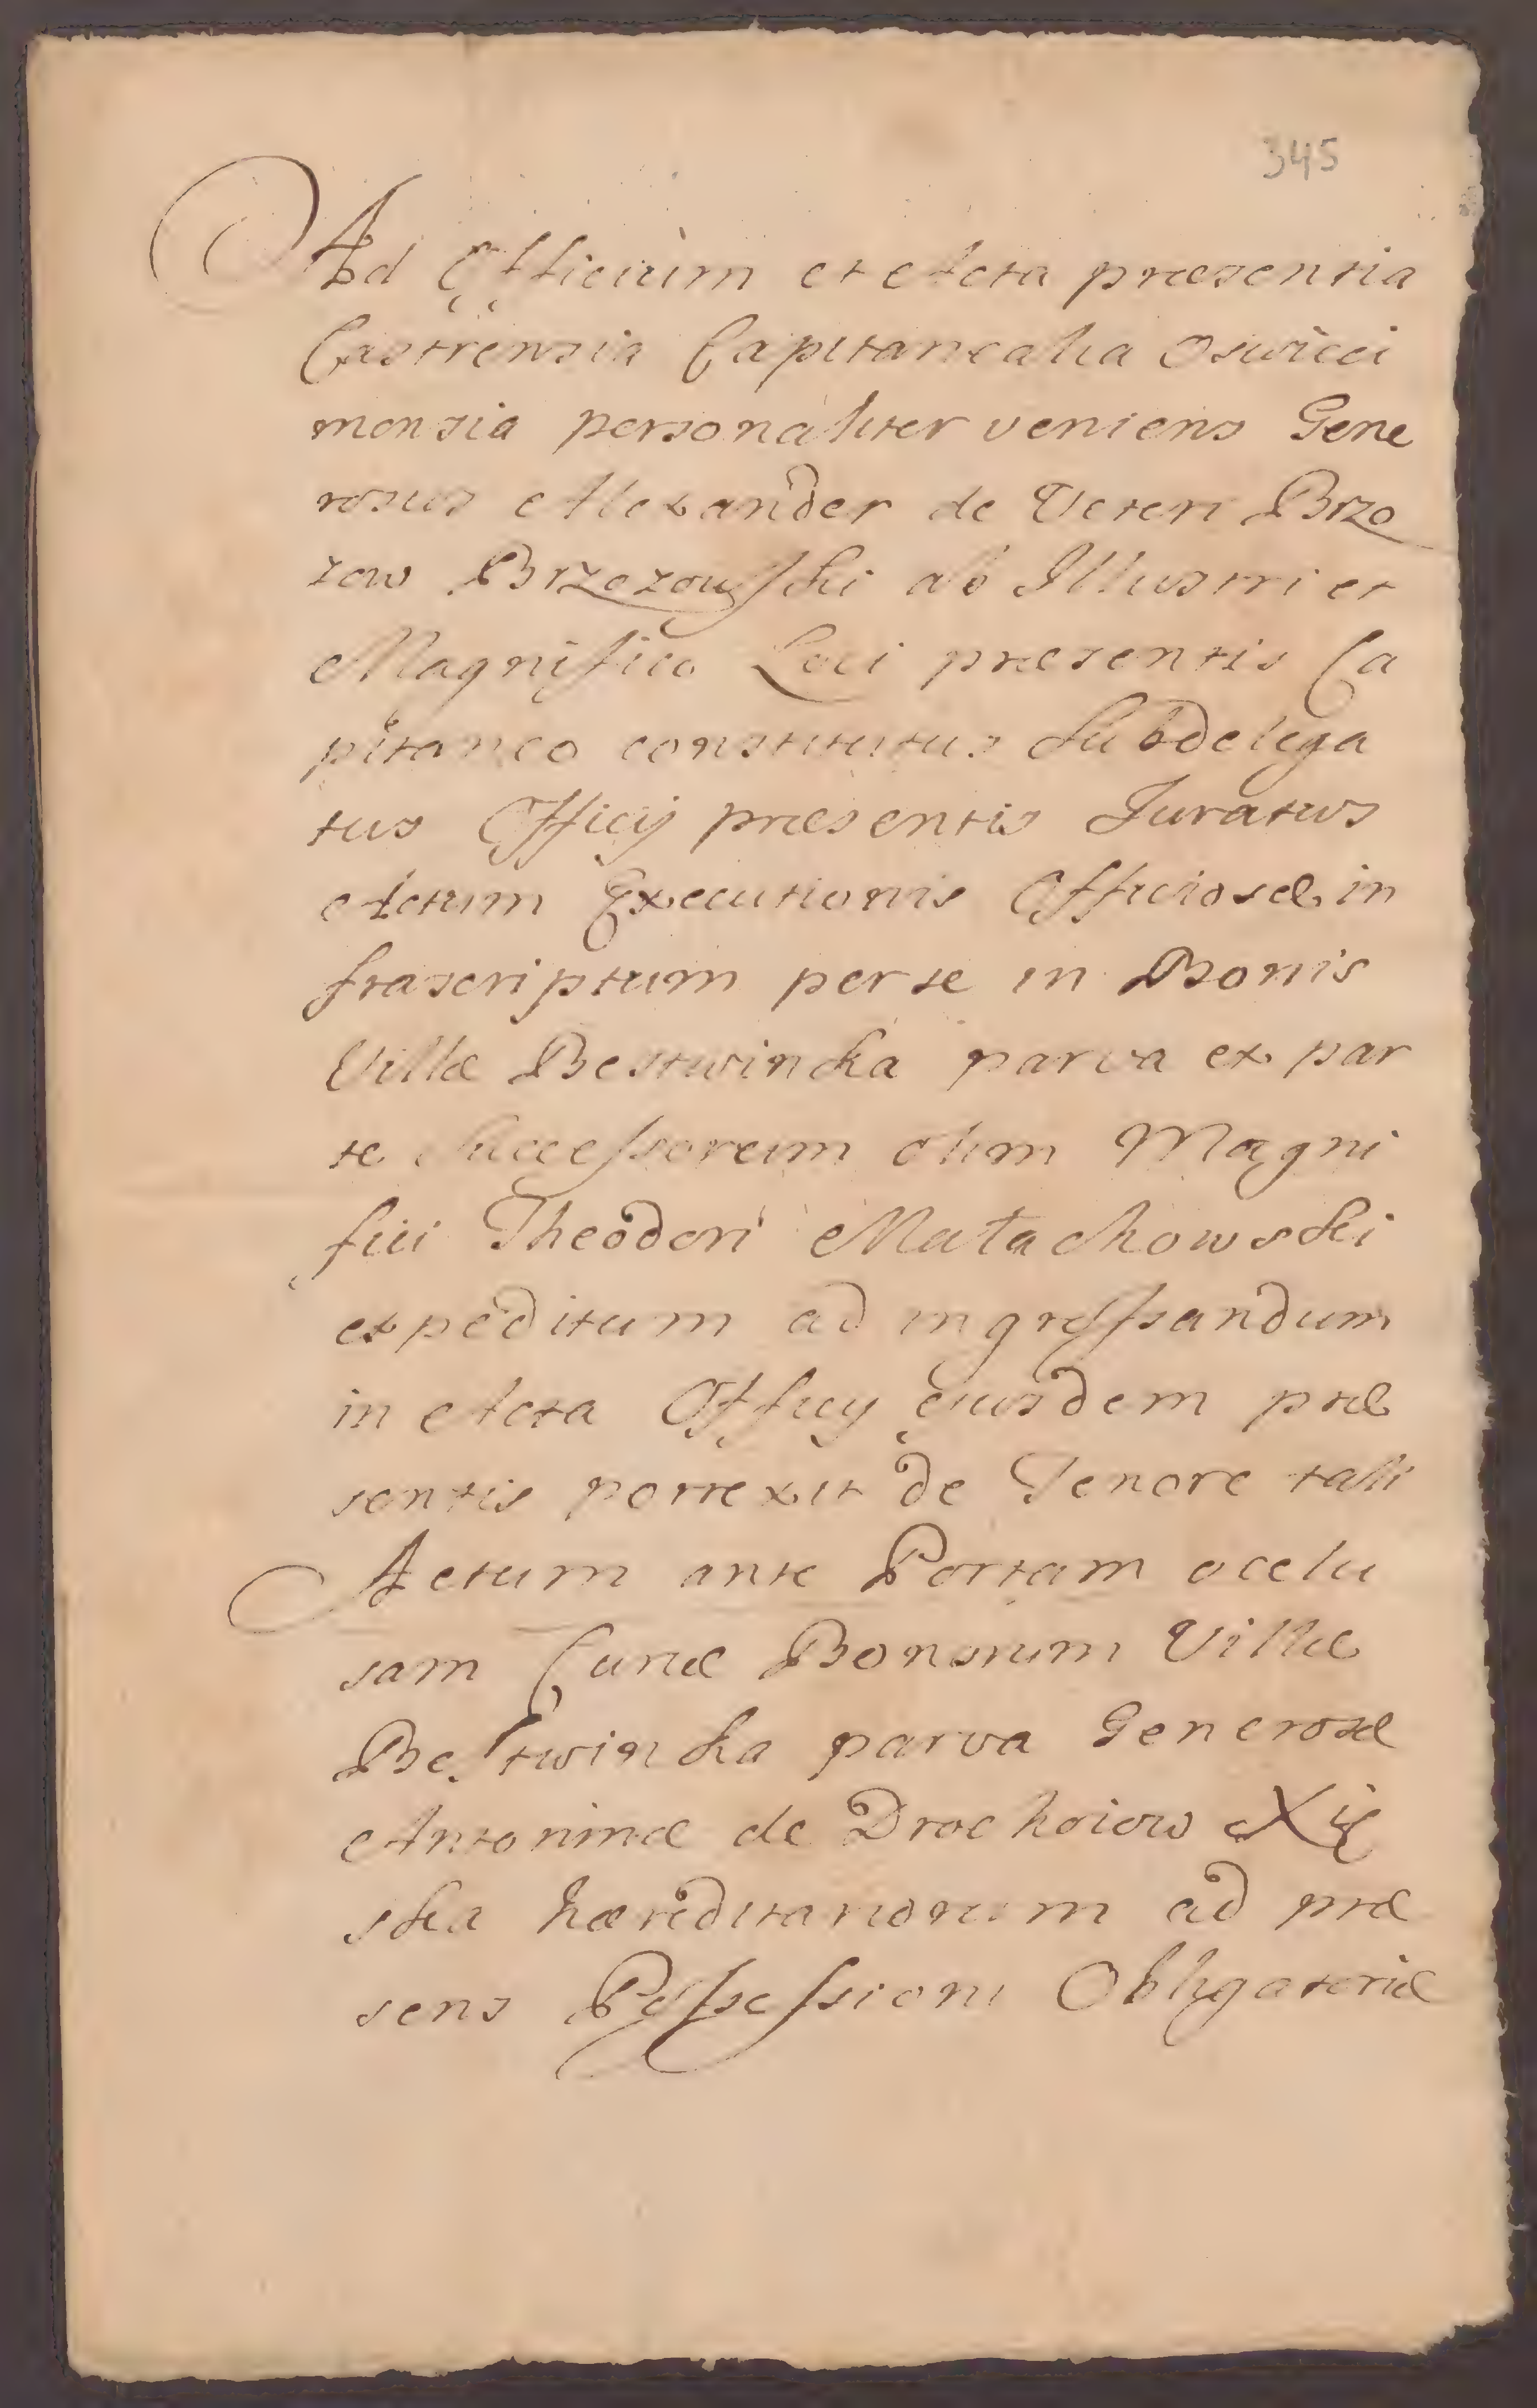 345
Ad Officium et Acta præsentia
Castrensia Capitanealia Oswieci
mensia personaliter veniens Gene
rosus Alexander de Veteri Brzo
zow Brzozowski ab Illustri et
Magnifico Loci præsentis Ca
pitaneo constitutus Subdelega
tus Officij præsentis Juratus
Actum Executionis Officiosæ in
frascriptum per se in Bonis
Villæ Bestwincka parva ex par
te Successorum olim Magni
fici Theodori Małachowski
expeditum ad ingrossandum
in Acta Officij ejusdem præ
sentis porrexit de Tenore tali
Actum ante Portam occlu
sam Curiæ Bonorum Villæ
Bestwincka parva Generosæ
Antoninæ de Drochoiow Xię
ska hæreditariorum ad præ
sens Possessioni Obligatoriæ